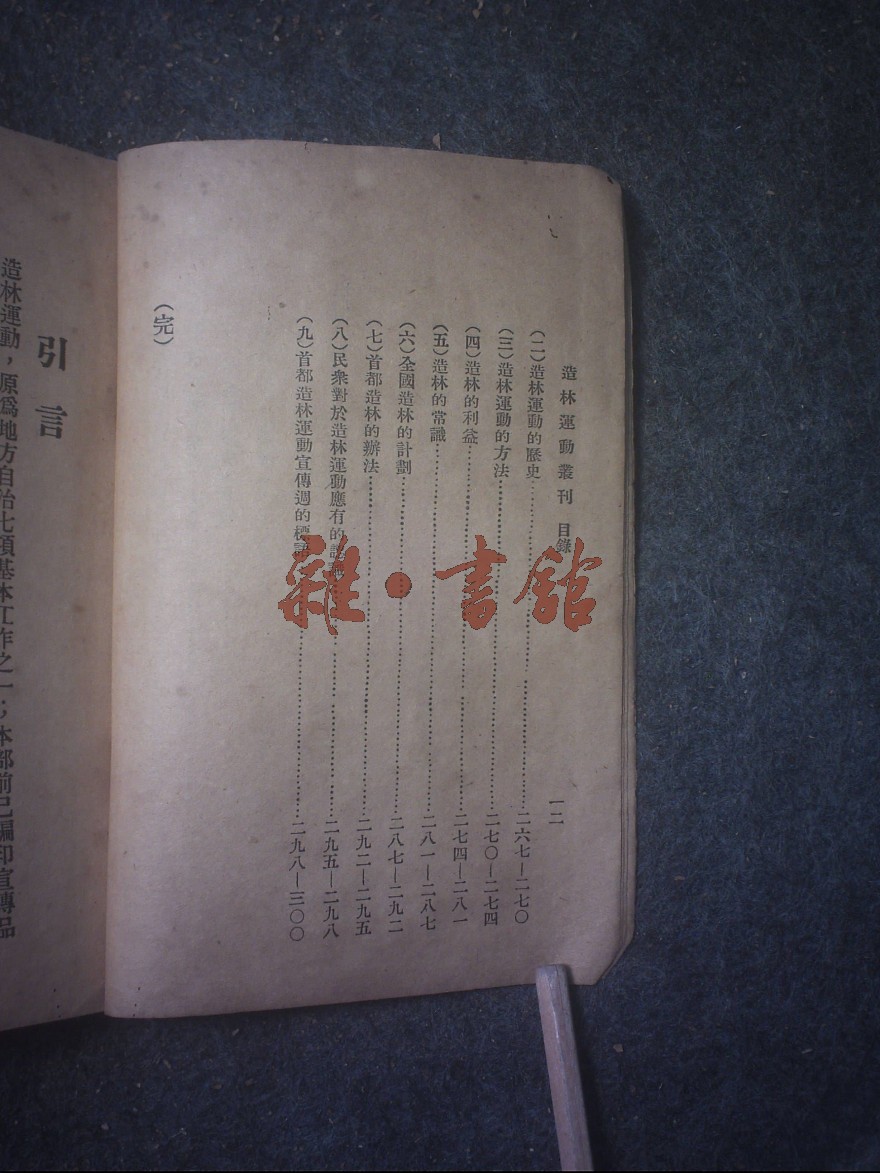 造林運動叢刊 目錄
一二
(二)造林運動的歷史 二六七—二七〇
(三)造林運動的方法 二七〇—二七四
(四)造林的利益 二七四—二八一
(五)造林的常識 二八一—二八七
(六)全國造林的計劃 二八七—二九二
(七)首都造林的辦法 二九二—二九五
(八)民衆對於造林運動應有的認識 二九五—二九八
(九)首都造林運動宣傳週的標語 二九八—三〇〇
(完)
雜·書館
引言
造林運動,原爲地方自治七項基本工作之一;本部前已編印宣傳品